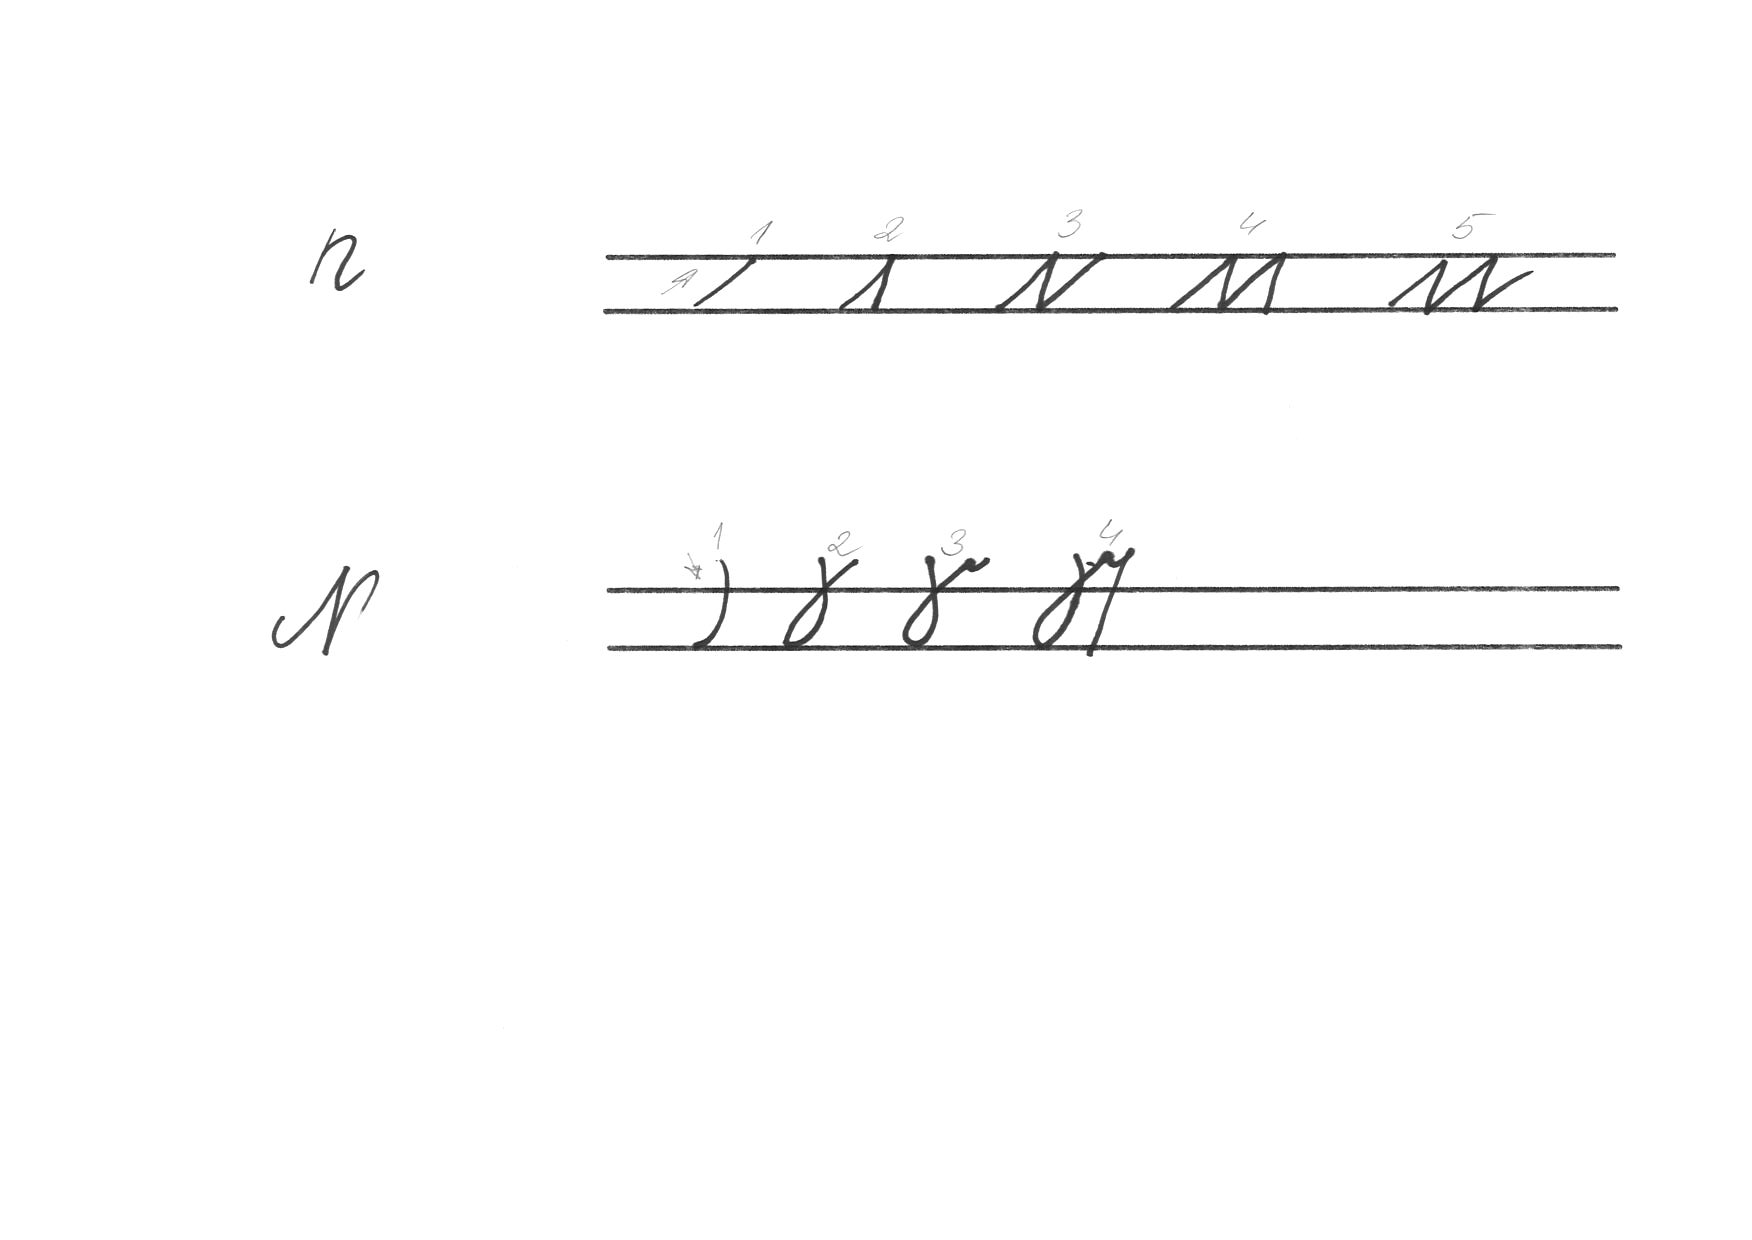 1 2 3 4 5
n
1 2 3 4
N